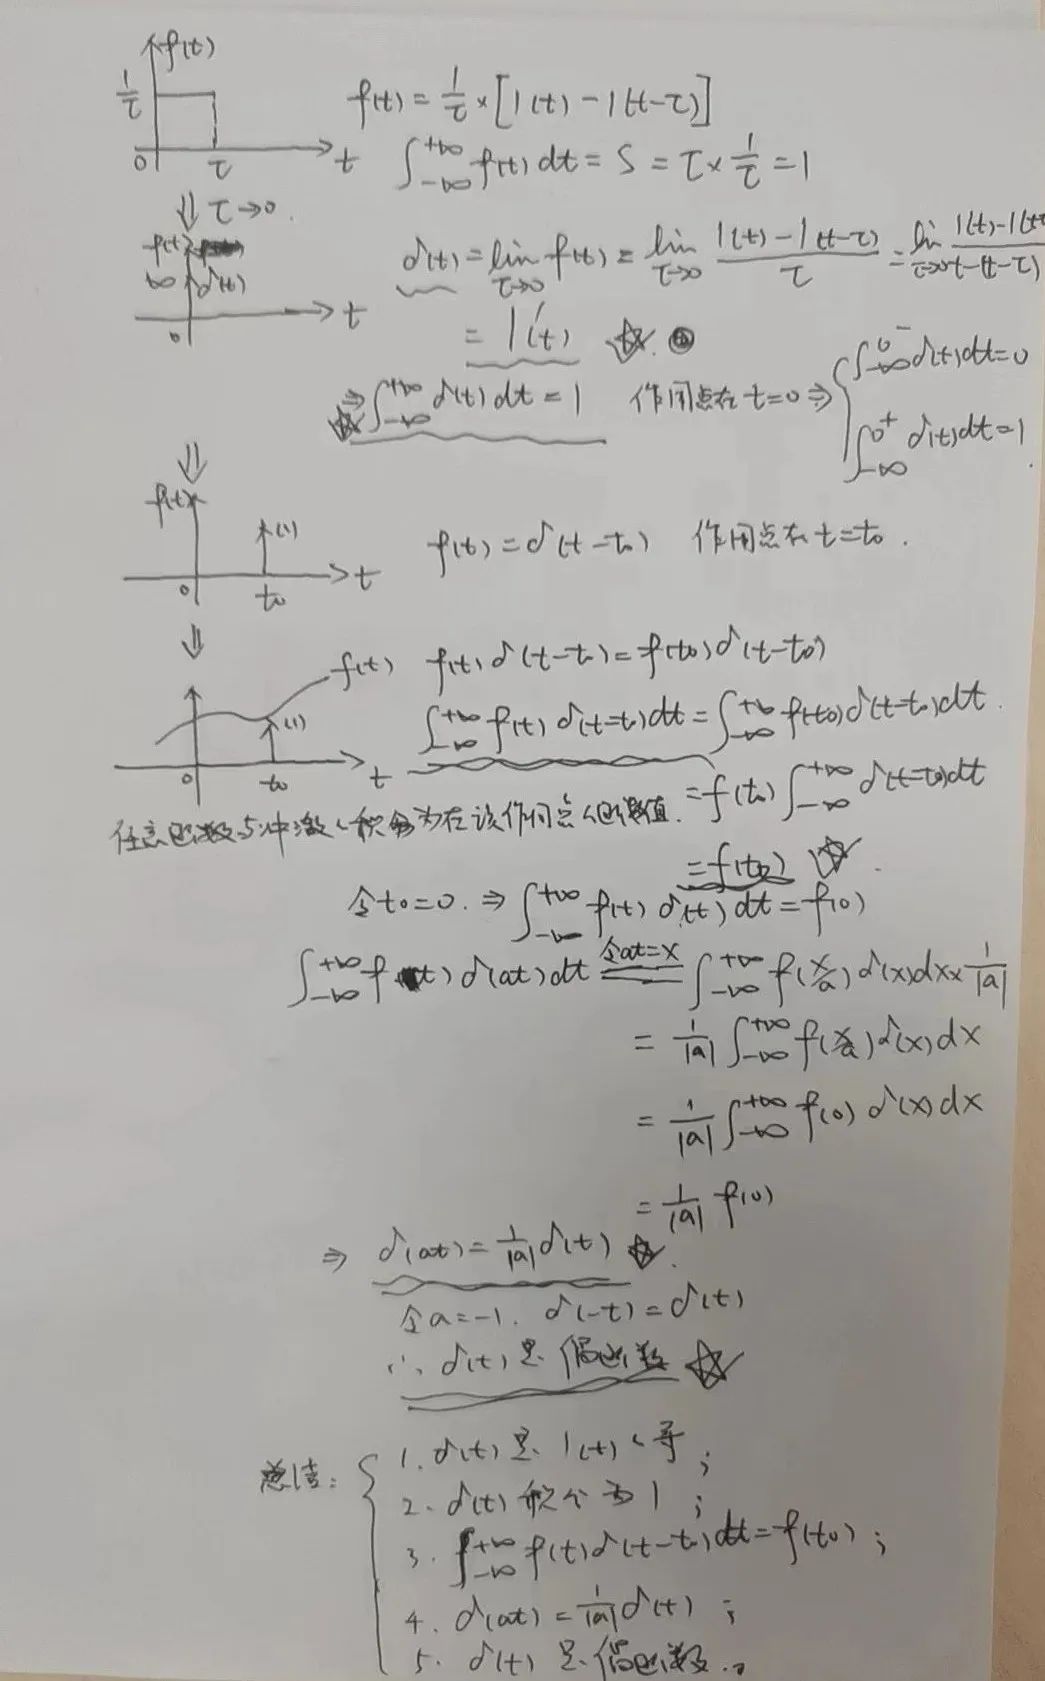 f(t)
1/τ
0 τ t
f(t) = 1/τ × [1(t) − 1(t−τ)]
∫_{-∞}^{+∞} f(t) dt = S = τ × 1/τ = 1
⇓ τ→0.
f(t)
∞ δ(t)
0 t
δ(t) = lim_{τ→0} f(t) = lim_{τ→0} (1(t) − 1(t−τ))/τ = lim_{τ→0} (1(t) − 1(t-τ))/(t−(t−τ))
= 1'(t) ☆.
⇒ ∫_{-∞}^{+∞} δ(t) dt = 1 作用点在 t=0 ⇒ { ∫_{-∞}^{0^-} δ(t) dt = 0
☆
∫_{-∞}^{0^+} δ(t) dt = 1.
⇓
f(t)
(1)
0 t₀ t
f(t) = δ(t−t₀) 作用点在 t=t₀.
⇓
f(t)
(1)
0 t₀ t
f(t) δ(t−t₀) = f(t₀) δ(t−t₀)
∫_{-∞}^{+∞} f(t) δ(t−t₀) dt = ∫_{-∞}^{+∞} f(t₀) δ(t−t₀) dt.
= f(t₀) ∫_{-∞}^{+∞} δ(t−t₀) dt
任意函数与冲激、积分为在该作用点、函数值.
= f(t₀) ☆.
令t₀=0. ⇒ ∫_{-∞}^{+∞} f(t) δ(t) dt = f(0)
∫_{-∞}^{+∞} f(t) δ(at) dt 令at=x = ∫_{-∞}^{+∞} f(x/a) δ(x) dx × 1/|a|
= 1/|a| ∫_{-∞}^{+∞} f(x/a) δ(x) dx
= 1/|a| ∫_{-∞}^{+∞} f(0) δ(x) dx
= 1/|a| f(0)
⇒ δ(at) = 1/|a| δ(t) ☆.
令a=−1. δ(−t) = δ(t)
∴ δ(t) 是偶函数 ☆
总结: { 1. δ(t) 是 1(t) 、导;
2. δ(t) 积分为1;
3. ∫_{-∞}^{+∞} f(t) δ(t−t₀) dt = f(t₀);
4. δ(at) = 1/|a| δ(t);
5. δ(t) 是偶函数.。